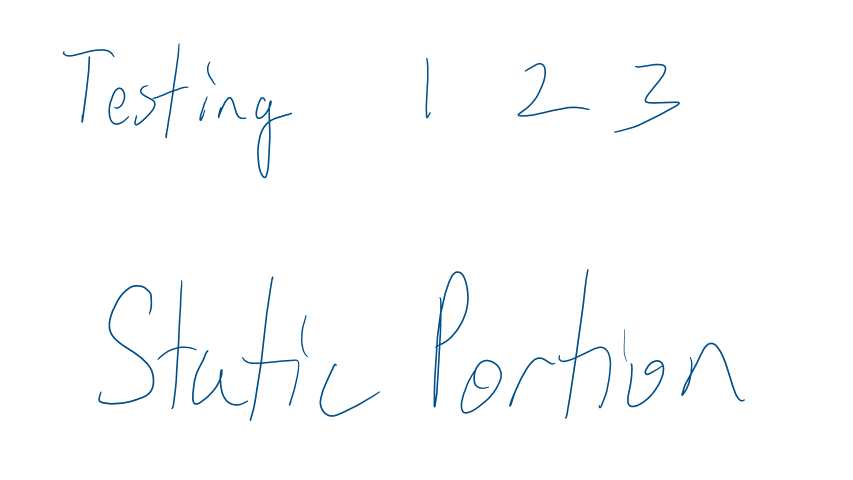 Testing 1 2 3
Static Portion